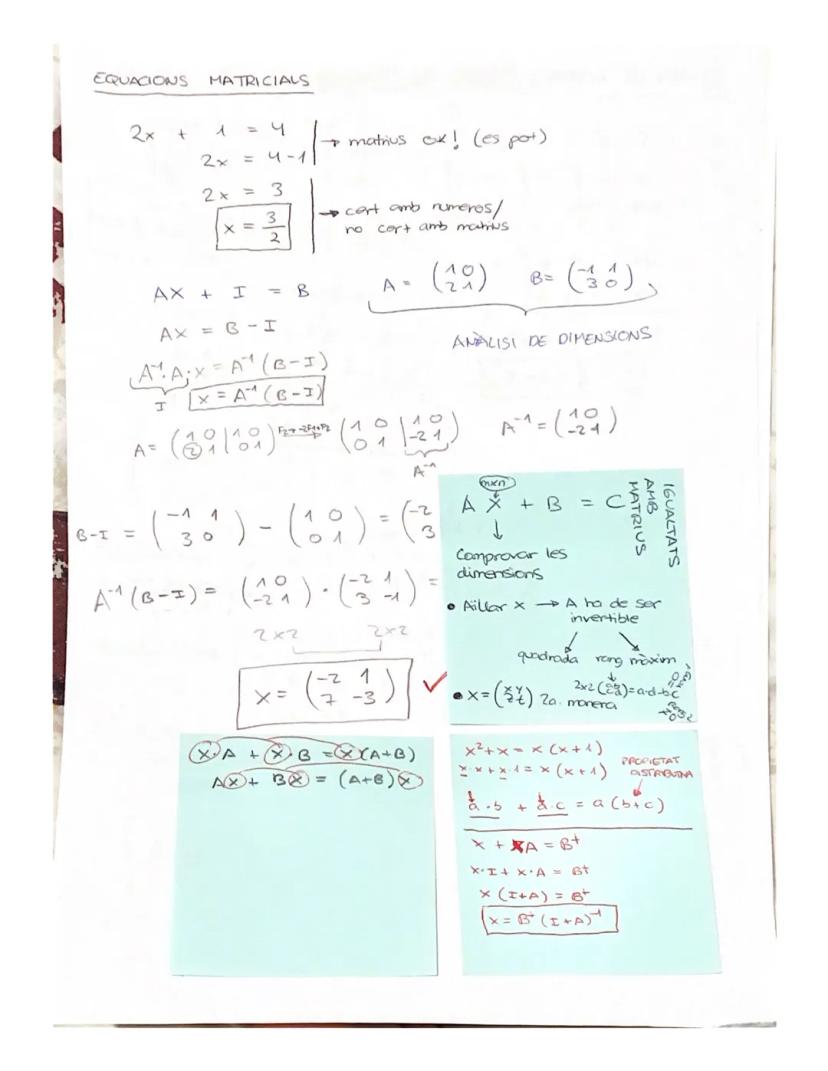 EQUACIONS MATRICIALS
2x + 1 = 4
2x = 4-1
→ matrius ok! (es pot)
2x = 3
x = 3/2
→ cert amb numeros/
no cert amb matrius
AX + I = B
A = (1 0 / 2 1) B = (-1 1 / 3 0)
AX = B - I
ANÀLISI DE DIMENSIONS
A⁻¹·A·x = A⁻¹(B-I)
I
x = A⁻¹(B-I)
A = (1 0 | 1 0 / 2 1 | 0 1) F2→-2F1+F2 (1 0 | 1 0 / 0 1 | -2 1) A⁻¹ = (1 0 / -2 1)
A⁻¹
B-I = (-1 1 / 3 0) - (1 0 / 0 1) = (-2 / 3
A⁻¹(B-I) = (1 0 / -2 1) · (-2 1 / 3 -1) =
2x2 2x2
x = (-2 1 / 7 -3) ✓
mxn
A X + B = C
IGUALTATS
AMB
MATRIUS
↓
Comprovar les
dimensions
• Aïllar x → A ha de ser
invertible
quadrada rang màxim
2x2 (a b / c d) = a·d-b·c
• x = (x y / z t) 2a. manera
x·A + x·B = x(A+B)
Ax + Bx = (A+B)x
x²+x = x(x+1)
x·x+x·1 = x(x+1)
PROPIETAT
DISTRIBUTIVA
a·b + a·c = a(b+c)
x + xA = Bᵗ
x·I + x·A = Bᵗ
x(I+A) = Bᵗ
x = Bᵗ(I+A)⁻¹